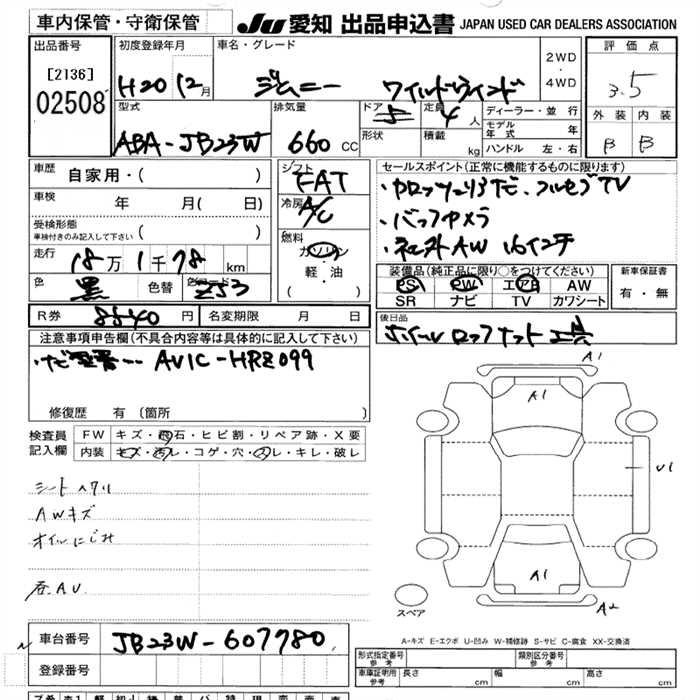 車内保管・守衛保管
JU 愛知 出品申込書 JAPAN USED CAR DEALERS ASSOCIATION
出品番号
[2136]
02508
初度登録年月
H20 12月
車名・グレード
ジムニー ワイルドウインド
2WD
4WD
評価点
3.5
外装 内装
B B
型式
ABA-JB23W
排気量
660 CC
ドア
5
形状
定員
4 人
積載
kg
ディーラー・並行
モデル年式 年
ハンドル 左・右
車歴
自家用・( )
車検
年 月( 日)
受検形態
車検付きのみ記入して下さい( )
走行
18万1千78 km
色
黒
色替
カラーコード
ZJ3
シフト
FAT
冷房
A/C
燃料
ガソリン
軽・油
( )
セールスポイント(正常に機能するものに限ります)
・カロッツェリアナビ、フルセグTV
・バックカメラ
・社外AW 16インチ
装備品(純正品に限り○をつけてください)
PS PW エアB AW
SR ナビ TV カワシート
新車保証書
有・無
R券
8540 円
名変期限 月 日
後日品
ホイールロックナット工具
注意事項申告欄(不具合内容等は具体的に記入して下さい)
・ナビ型番… AVIC-HRZ099
修復歴 有 〔箇所 〕
検査員記入欄
FW キズ・飛石・ヒビ割・リペア跡・X要
内装 キズ・汚レ・コゲ・穴・スレ・キレ・破レ
シートヘタリ
AWキズ
オイルにじみ
A1
A1
U1
A1
A2
スペア
A-キズ E-エクボ U-凹み W-補修跡 S-サビ C-腐食 XX-交換済
車台番号
JB23W-607780
登録番号
形式指定番号
参考
類別区分番号
参考
車庫証明用
参考
長さ cm
幅 cm
高さ cm